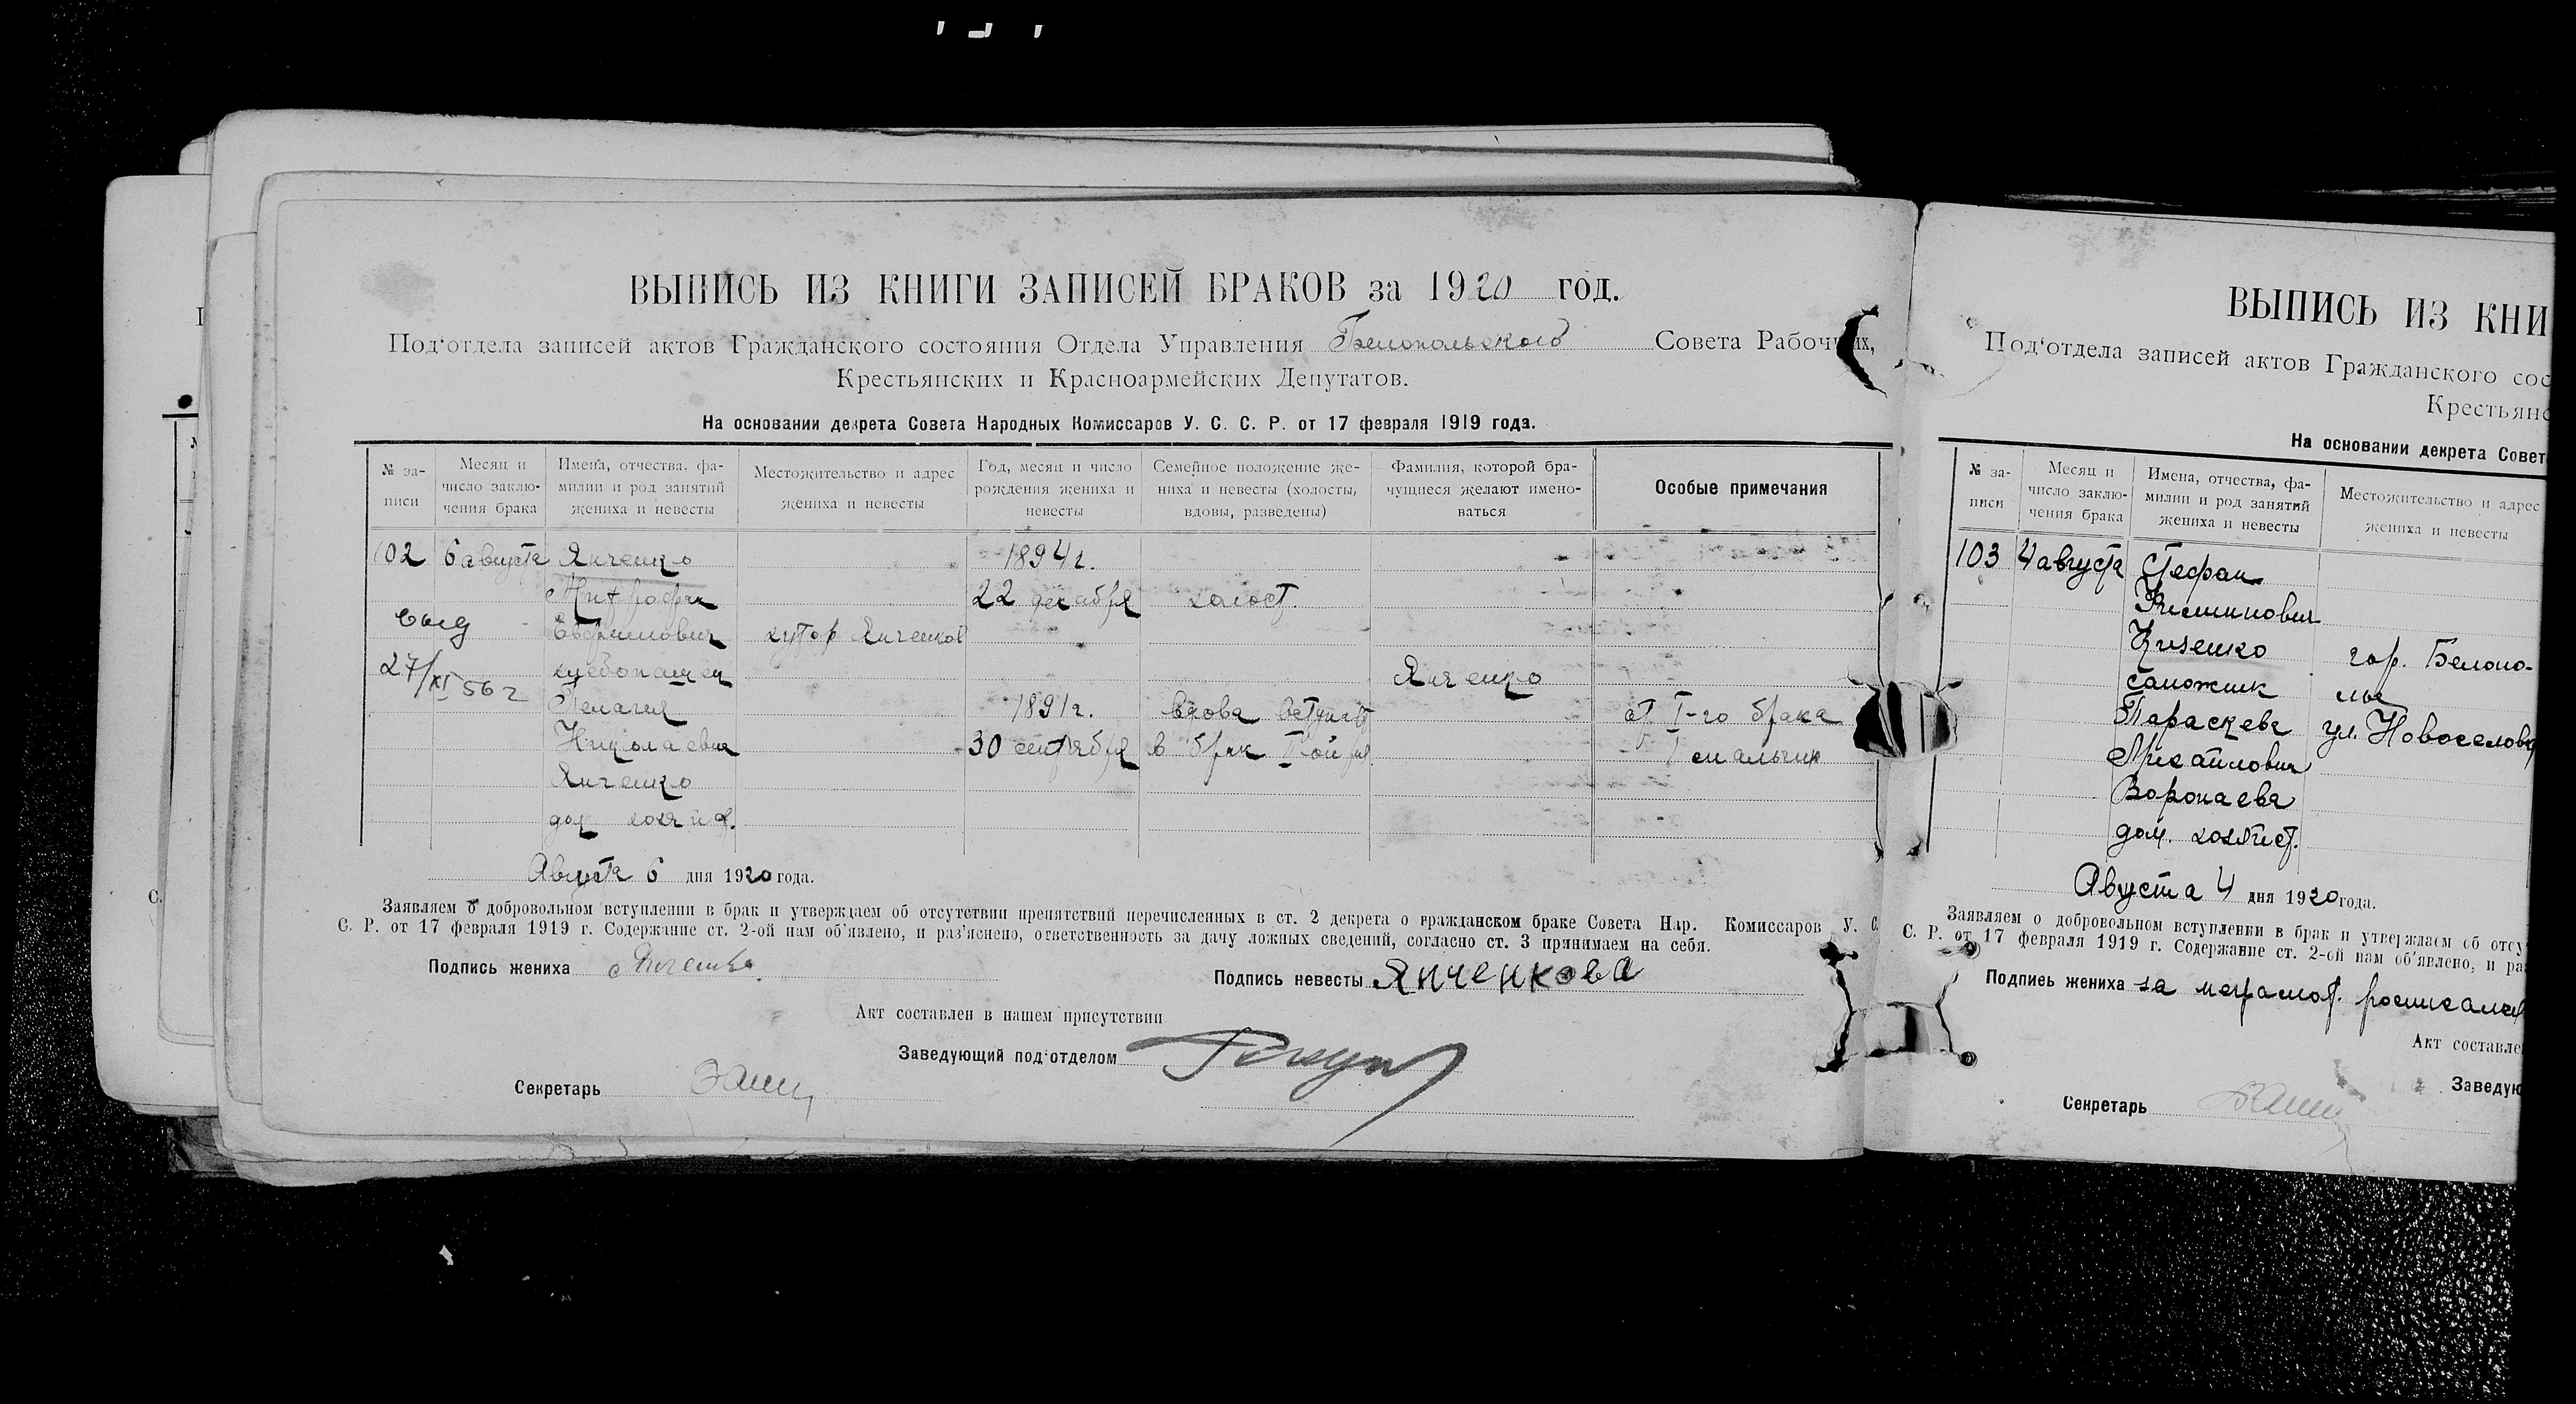 ВЫПИСЬ ИЗ КНИГИ ЗАПИСЕЙ БРАКОВ за 1920 год.
Под‘отдела записей актов Гражданского состояния Отдела Управления Белопольского Совета Рабочих,
Крестьянских и Красноармейских Депутатов.
На основании декрета Совета Народных Комиссаров У. С. С. Р. от 17 февраля 1919 года.
№ за-
писи
Месяц и
число заклю-
чения брака
Имена, отчества, фа-
милии и род занятий
жениха и невесты
Местожительство и адрес
жениха и невесты
Год, месяц и число
рождения жениха и
невесты
Семейное положение же-
ниха и невесты (холосты,
вдовы, разведены)
Фамилия, которой бра-
чущиеся желают имено-
ваться
Особые примечания
102 6 августа Янченко 1894 г.
Митрофан 22 декабря холост.
Евфимович хутор Янченков
27/XI 56 г
хлебопашец Янченко
Пелагея 1891 г. вдова вступает от I-го брака
Николаевна 30 сентября в брак II-ой раз 1 мальчик
Янченко
дом хозяйс.
Августа 6 дня 1920 года.
Заявляем о добровольном вступлении в брак и утверждаем об отсутствии препятствий перечисленных в ст. 2 декрета о гражданском браке Совета Нар. Комиссаров У. С.
С. Р. от 17 февраля 1919 г. Содержание ст. 2-ой нам об‘явлено, и раз‘яснено, ответственность за дачу ложных сведений, согласно ст. 3 принимаем на себя.
Подпись жениха Янченко
Подпись невесты Янченкова
Акт составлен в нашем присутствии
Заведующий под‘отделом
Секретарь
ВЫПИСЬ ИЗ КНИ
Под‘отдела записей актов Гражданского сос
Крестьянс
На основании декрета Совет
№ за-
писи
Месяц и
число заклю-
чения брака
Имена, отчества, фа-
милии и род занятий
жениха и невесты
Местожительство и адрес
жениха и невесты
103 4 августа Стефан
Кизенко гор. Белопо-
сапожник лье
Параскева ул. Новоселовка
Михайловна
Воропаева
дом. хозяйст.
Августа 4 дня 1920 года.
Заявляем о добровольном вступлении в брак и утверждаем об отсу
С. Р. от 17 февраля 1919 г. Содержание ст. 2-ой нам об‘явлено, и ра
Подпись жениха за неграмот. росписался
Акт составле
Заведую
Секретарь